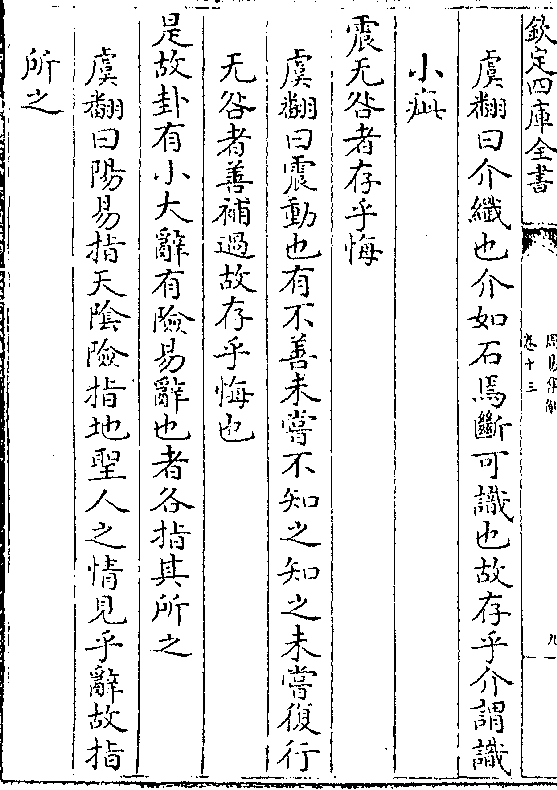 欽定四庫全書
周易集解
卷十三
九
虞翻曰介纖也介如石焉斷可識也故存乎介謂識
小疵
震无咎者存乎悔
虞翻曰震動也有不善未嘗不知之知之未嘗復行
无咎者善補過故存乎悔也
是故卦有小大辭有險易辭也者各指其所之
虞翻曰陽易指天隂險指地聖人之情見乎辭故指
所之